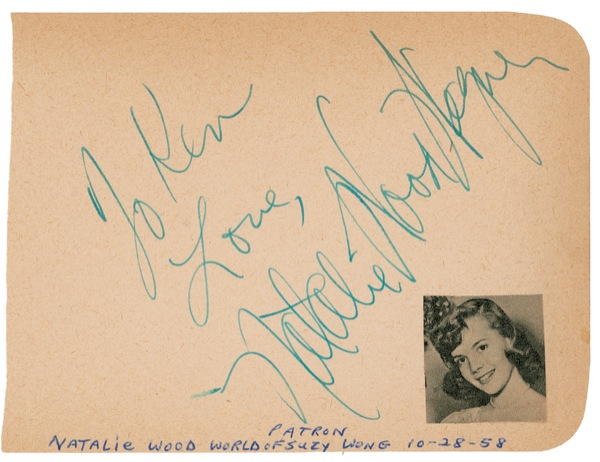 To Ken
Love,
Natalie Wood Wagner
PATRON
NATALIE WOOD WORLD OF SUZY WONG 10-28-58